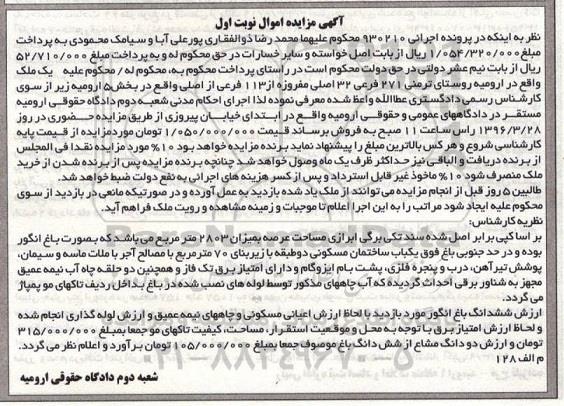 آگهی مزایده اموال نوبت اول
نظر به اینکه در پرونده اجرائی ۹۳۰۲۱۰ محکوم علیهما محمد رضا ذوالفقاری پورعلی آبا و سیامک محمودی به پرداخت
مبلغ ۱/۰۵۴/۳۲۰/۰۰۰ ریال از بابت اصل خواسته و سایر خسارات در حق محکوم له و به پرداخت مبلغ ۵۲/۷۱۰/۰۰۰
ریال از بابت نیم عشر دولتی در حق دولت محکوم است در راستای پرداخت محکوم به، محکوم له / محکوم علیه یک ملک
واقع در ارومیه روستای ترمنی ۲۷۱ فرعی ۳۲ اصلی مفروزه از ۱۱۳ فرعی از اصلی واقع در بخش ۵ ارومیه زیر از سوی
کارشناس رسمی دادگستری عطااللّه واعظ شده معرفی نموده لذا اجرای احکام مدنی شعبه دوم دادگاه حقوقی ارومیه
مستقر در دادگاههای عمومی و حقوقی ارومیه واقع در ابتدای خیابان پیروزی از طریق مزایده حضوری در روز
۱۳۹۶/۳/۲۸ راس ساعت ۱۱ صبح به فروش برساند قیمت ۱/۰۵۰/۰۰۰/۰۰۰ تومان مورد مزایده از قیمت پایه
کارشناسی شروع و هر کس بالاترین مبلغ را پیشنهاد نماید برنده مزایده خواهد بود ۱۰% مورد مزایده نقدا فی المجلس
از برنده دریافت و الباقی نیز حداکثر ظرف یک ماه وصول خواهد شد چنانچه برنده مزایده پس از برنده شدن از خرید
ملک منصرف شود ۱۰% ماخوذ غیر قابل استرداد و پس از کسر هزینه های اجرائی به نفع دولت ضبط خواهد شد.
طالبین ۵ روز قبل از انجام مزایده می توانند از ملک یاد شده بازدید به عمل آورده و در صورتیکه مانعی در بازدید از سوی
محکوم علیه ایجاد شود مراتب را به این اجرا اعلام تا موجبات و زمینه مشاهده و رویت ملک فراهم آید.
نظریه کارشناس:
بر اسا کپی برابر اصل شده سند تکی برگی ابرازی مساحت عرصه بمیزان ۲۸۰۳ متر مربع می باشد که بصورت باغ انگور
بوده و در حد جنوبی باغ فوق یکباب ساختمان مسکونی دوطبقه با زیربنای ۷۰ متر مربع با مصالح آجر با ملات ماسه و سیمان،
پوشش تیرآهن، درب و پنجره فلزی، پشت بام ایزوگام و دارای امتیاز برق تک فاز و همچنین دو حلقه چاه آب نیمه عمیق
مجهز به شناور برقی احداث گردیده که آب چاههای مذکور توسط لوله های نصب شده در باغ بداخل ردیف تاکهای مو پمپاژ
می گردد.
ارزش ششدانگ باغ انگور مورد بازدید با لحاظ ارزش اعیانی مسکونی و چاههای نیمه عمیق و ارزش لوله گذاری انجام شده
و لحاظ ارزش امتیاز برق با توجه به محل و موقعیت استقرار، مساحت، کیفیت تاکهای مو جمعا بمبلغ ۳۱۵/۰۰۰/۰۰۰
تومان و ارزش دو دانگ مشاع از شش دانگ باغ موصوف جمعا بمبلغ ۱۰۵/۰۰۰/۰۰۰ تومان برآورد و اعلام نظر می گردد.
م الف ۱۲۸
شعبه دوم دادگاه حقوقی ارومیه